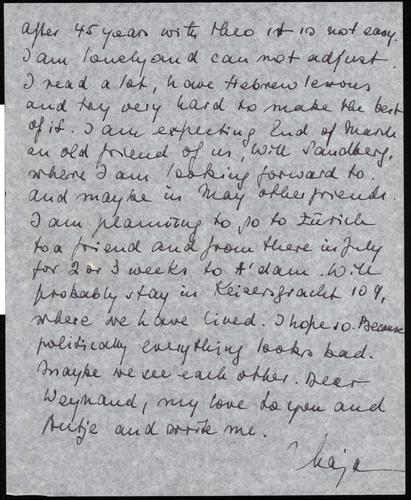 after 45 years with theo it is not easy.
I am lonely and can not adjust.
I read a lot, have Hebrew lessons
and try very hard to make the best
of it. I am expecting End of March
an old friend of us, Will Sandberg,
where I am looking forward to.
and maybe in May other friends.
I am planning to go to Zürich
to a friend and from there in July
for 2 or 3 weeks to A'dam. Will
probably stay in Keizersgracht 109,
where we have lived. I hope so. Because
politically everything looks bad.
Maybe we see each other. Dear
Weynand, my love to you and
Antje and write me.
Maja